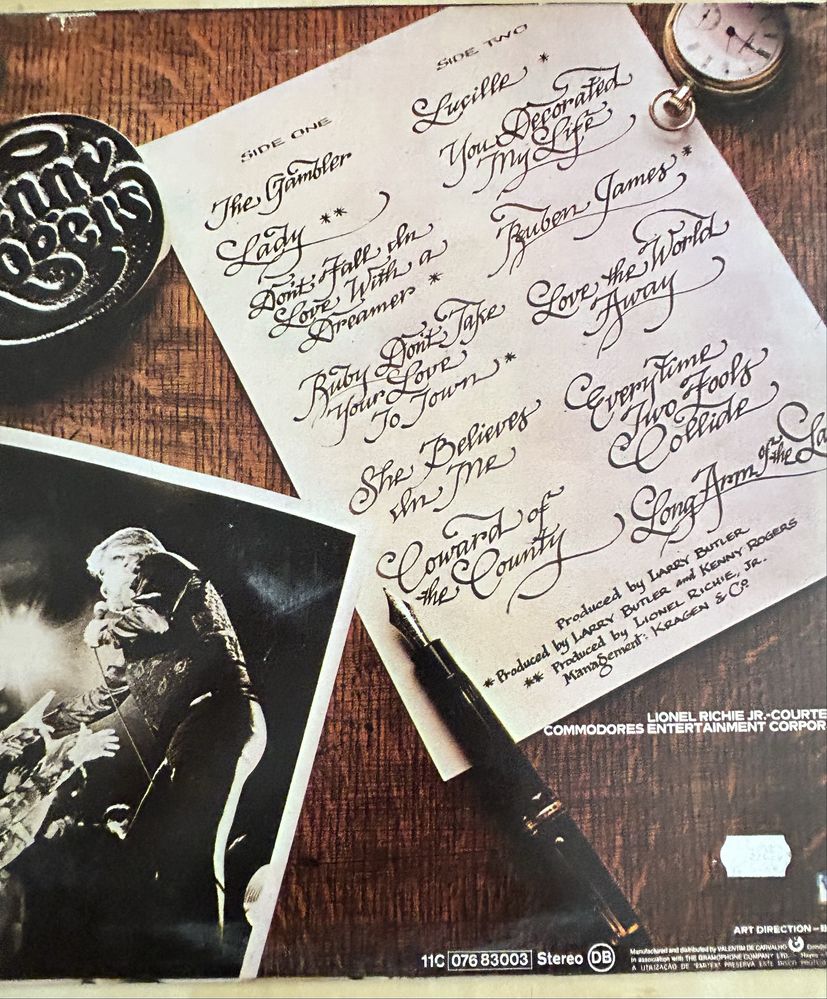 SIDE ONE
The Gambler
Lady **
Don't Fall In
Love With a
Dreamer *
Ruby Don't Take
Your Love
To Town *
She Believes
In Me
Coward of
the County
SIDE TWO
Lucille *
You Decorated
My Life
Reuben James *
Love the World
Away
Everytime
Two Fools
Collide
Long Arm of the La
Produced by LARRY BUTLER
* Produced by LARRY BUTLER and KENNY ROGERS
** Produced by LIONEL RICHIE, JR.
Management: KRAGEN & Co
LIONEL RICHIE JR.-COURTE
COMMODORES ENTERTAINMENT CORPOR
ART DIRECTION-
11C 076 83003 Stereo DB
Manufactured and distributed by VALENTIM DE CARVALHO
In association with THE GRAMOPHONE COMPANY LTD. - Hayes
A UTILIZAÇÃO DE "PARTEX" PRESERVA ESTE DISCO